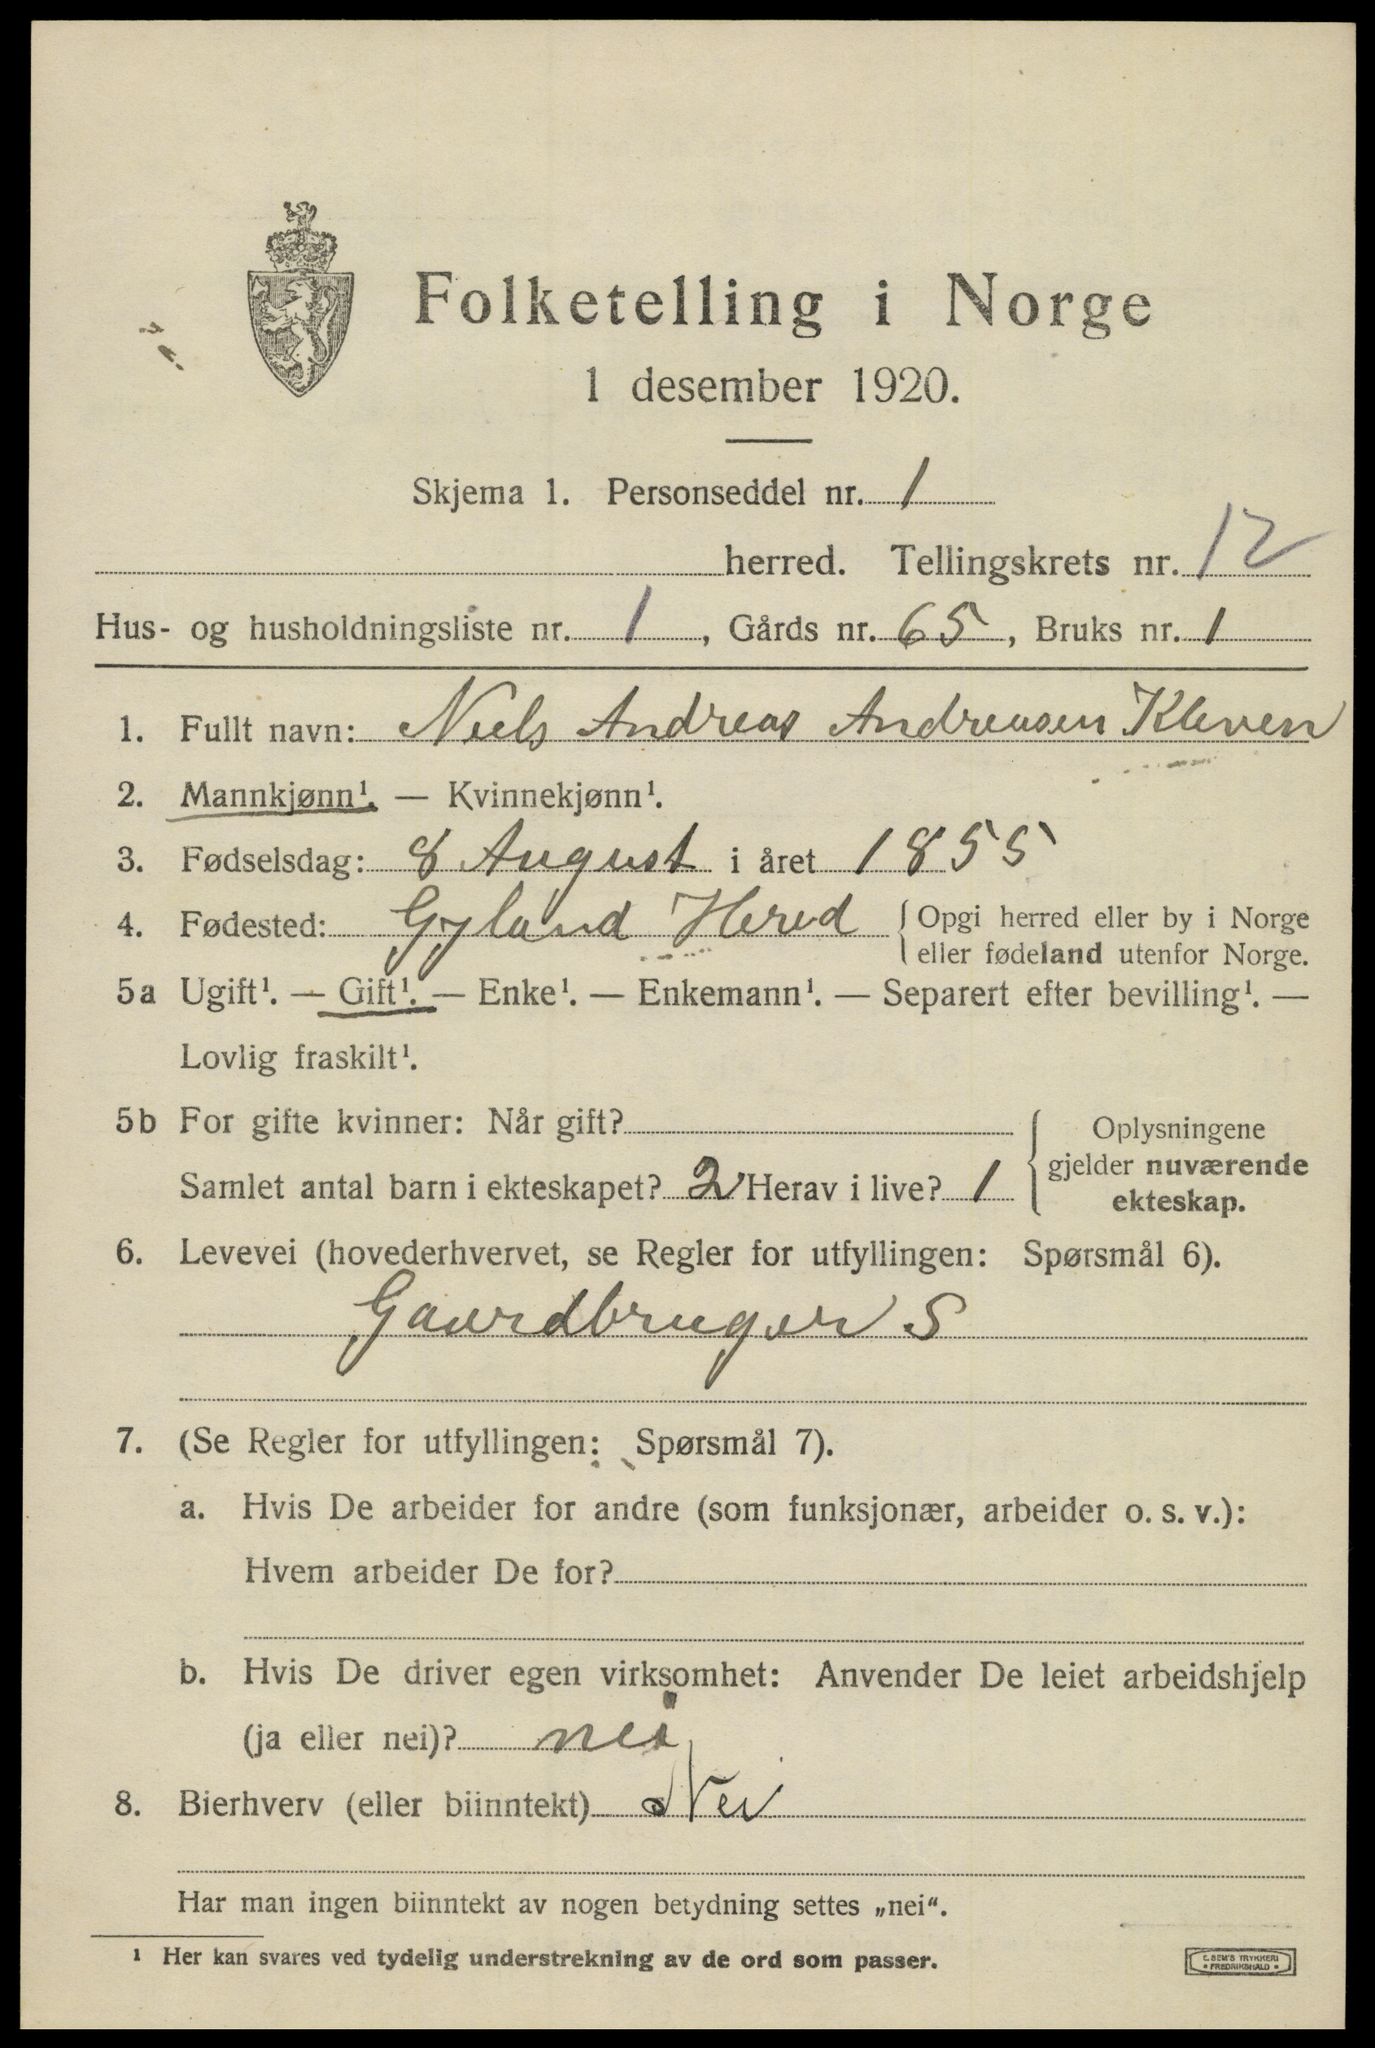 Folketelling i Norge
1 desember 1920.
Skjema 1. Personseddel nr. 1
herred. Tellingskrets nr. 12
Hus- og husholdningsliste nr. 1, Gårds nr. 65, Bruks nr. 1
1. Fullt navn: Niels Andreas Andreasen Kleven
2. Mannkjønn¹. — Kvinnekjønn¹.
3. Fødselsdag: 8 August i året 1855
4. Fødested: Gyland Hered { Opgi herred eller by i Norge
eller fødeland utenfor Norge.
5a Ugift¹. — Gift¹. — Enke¹. — Enkemann¹. — Separert efter bevilling¹. —
Lovlig fraskilt¹.
5b For gifte kvinner: Når gift?
Samlet antal barn i ekteskapet? 2 Herav i live? 1
Oplysningene
gjelder nuværende
ekteskap.
6. Levevei (hovederhvervet, se Regler for utfyllingen: Spørsmål 6).
Gaardbruger S
7. (Se Regler for utfyllingen: Spørsmål 7).
a. Hvis De arbeider for andre (som funksjonær, arbeider o. s. v.):
Hvem arbeider De for?
b. Hvis De driver egen virksomhet: Anvender De leiet arbeidshjelp
(ja eller nei)? nei
8. Bierhverv (eller biinntekt) Nei
Har man ingen biinntekt av nogen betydning settes „nei“.
¹ Her kan svares ved tydelig understrekning av de ord som passer.
E. SEM'S TRYKKERI
• FREDRIKSHALD •